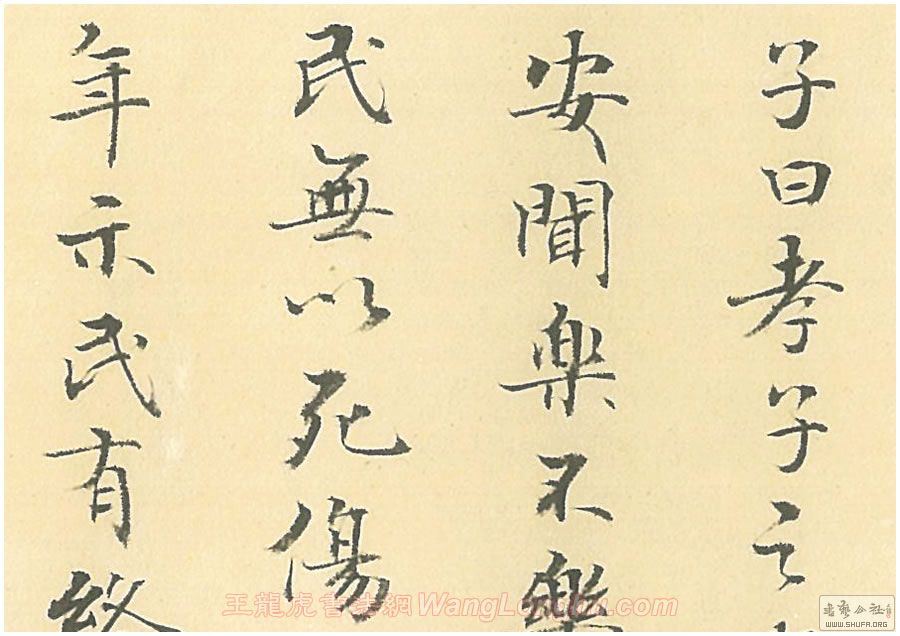 子曰孝子之
安聞楽不樂
民無以死傷
年示民有終
王龍虎書法網WangLonghu.com
書藝公社
WWW.SHUFA.ORG